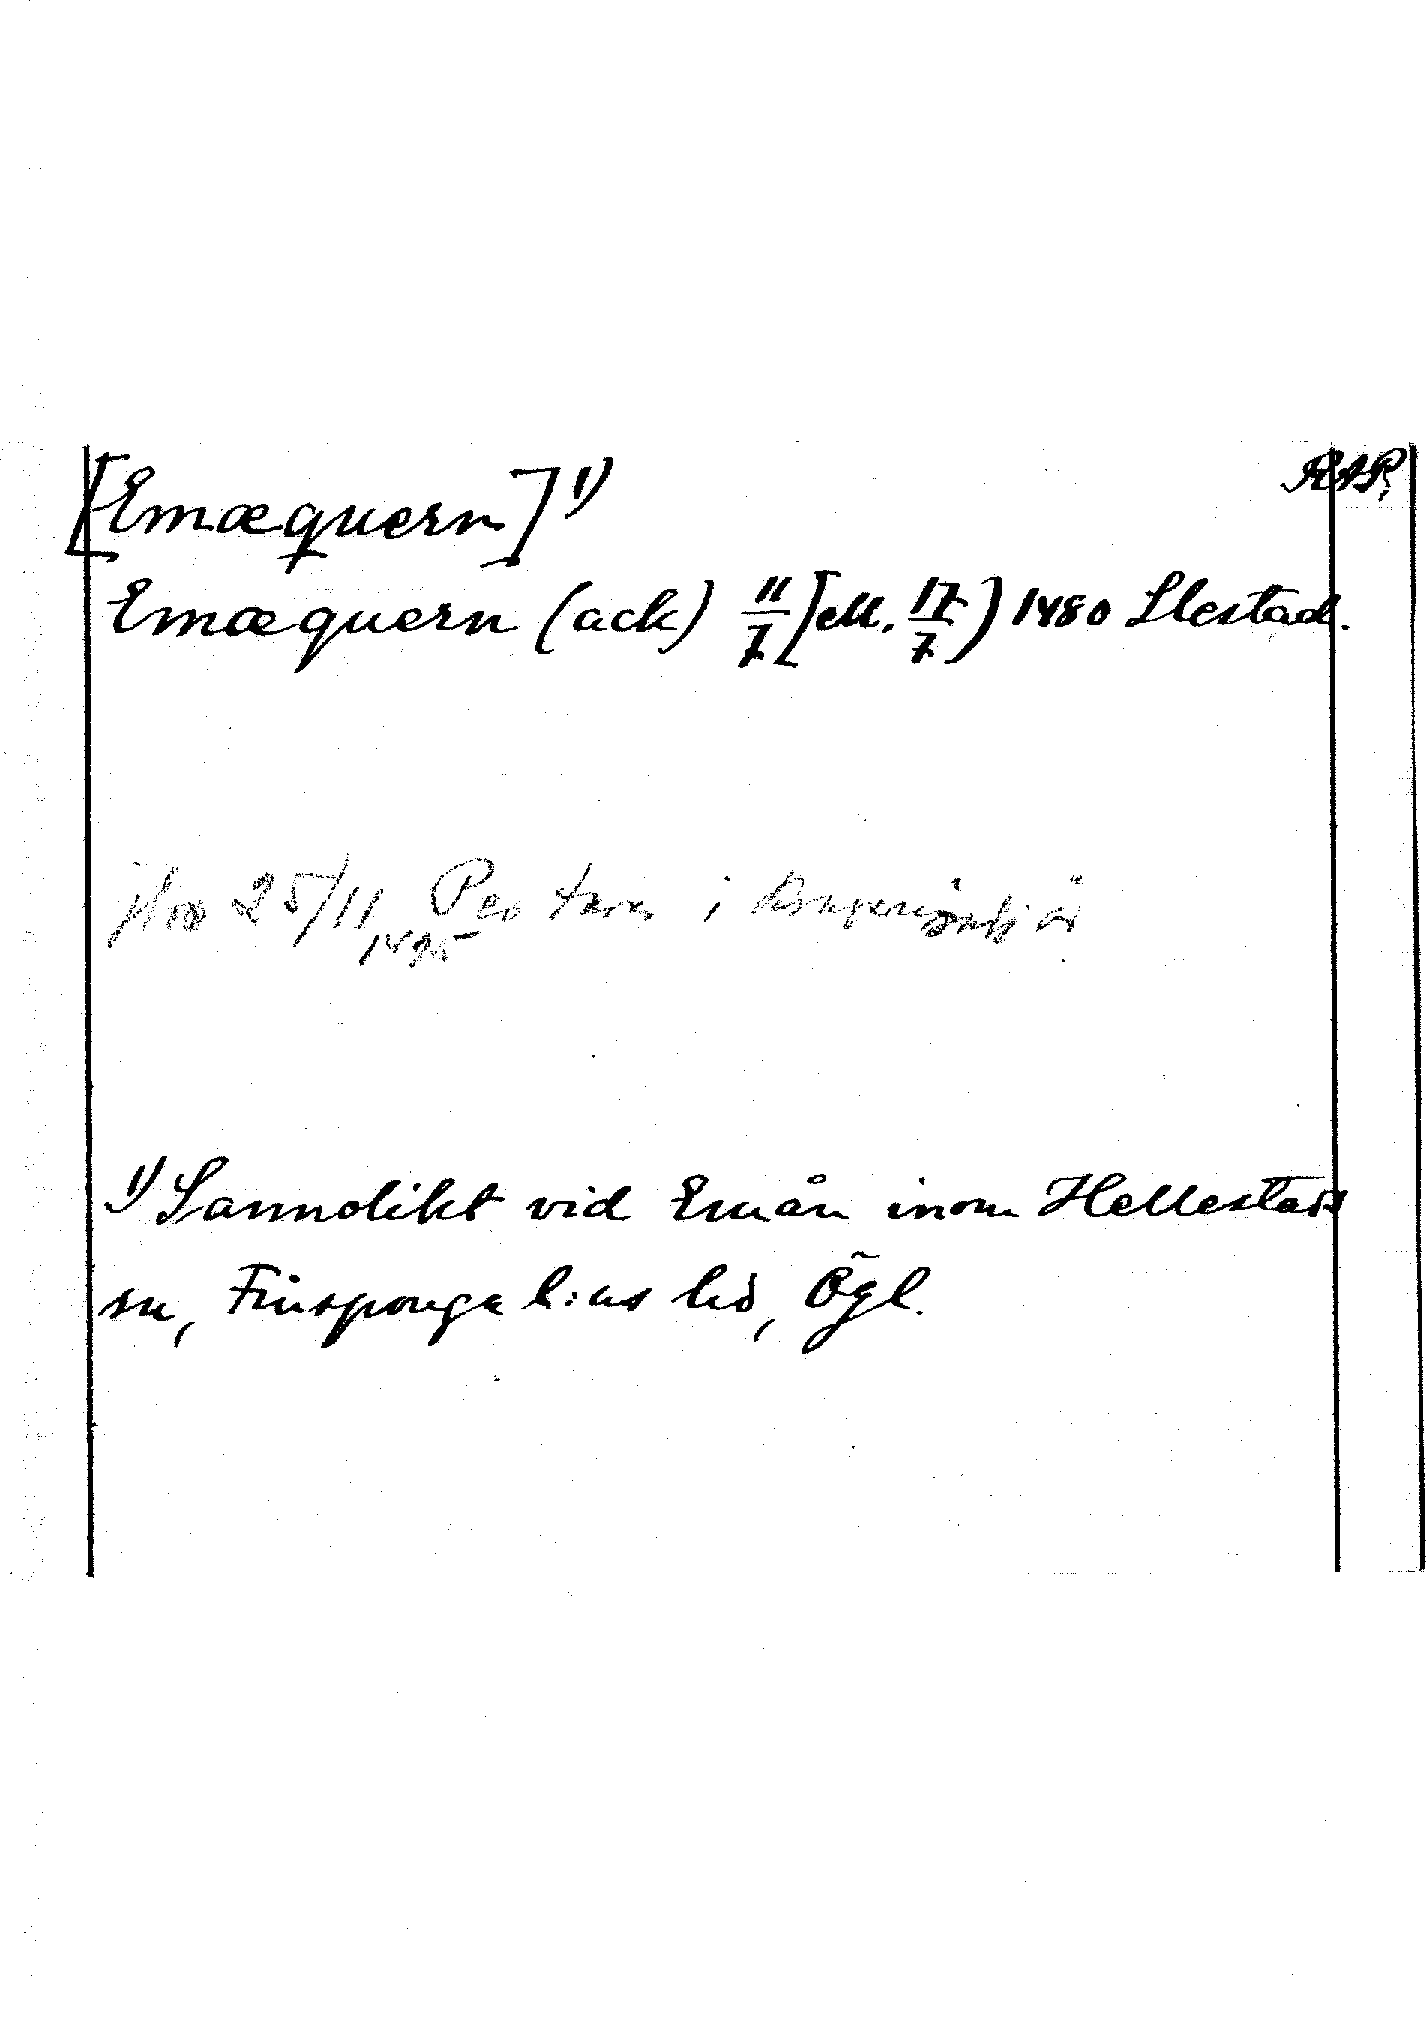 [Emæquern] 1) RAP.
Emæquern (ack) 11/7 [ell. 17/7) 1480 Slestad.
jfr 25/11 1495 Per i
1) Sannolikt vid Emån inom Hellestads
sn, Finsponga l:ns hd, Ögl.